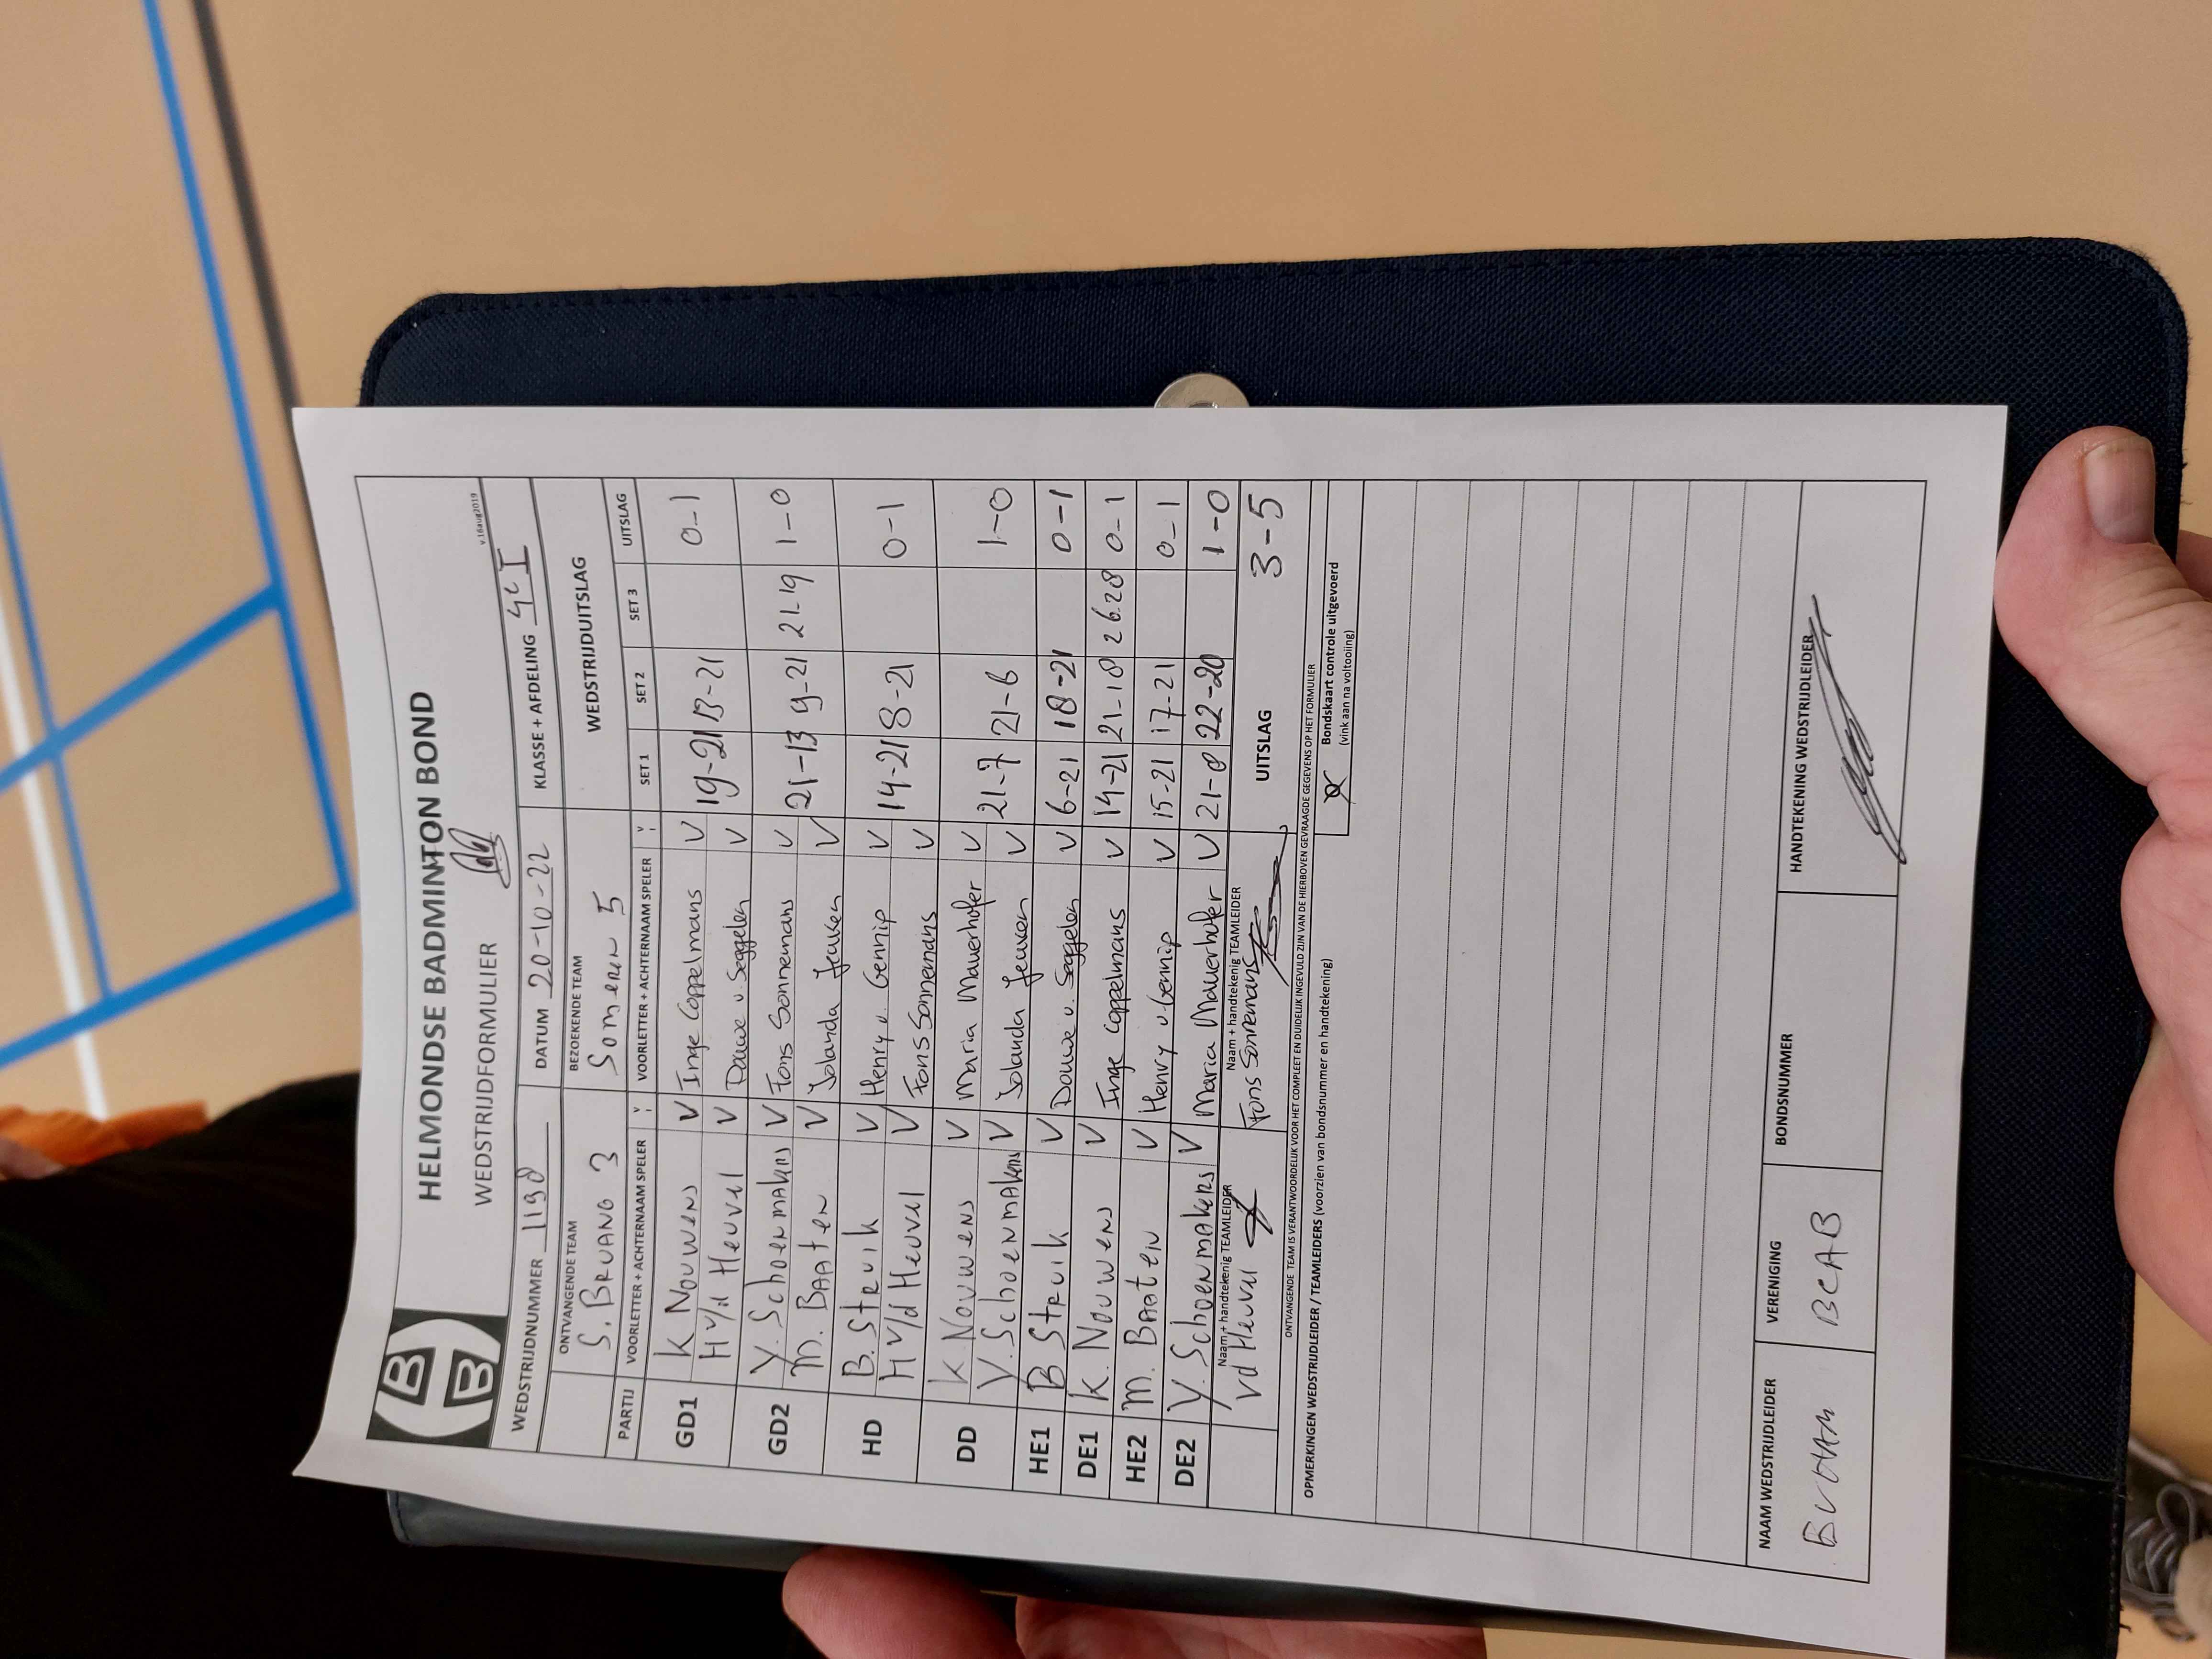 HELMONDSE BADMINTON BOND
WEDSTRIJDFORMULIER
v.16aug2019
WEDSTRIJDNUMMER 1198 DATUM 20-10-22 KLASSE + AFDELING 4e I
ONTVANGENDE TEAM BEZOEKENDE TEAM WEDSTRIJDUITSLAG
S. BRVANG 3 Someren 5
PARTIJ VOORLETTER + ACHTERNAAM SPELER V VOORLETTER + ACHTERNAAM SPELER V SET 1 SET 2 SET 3 UITSLAG
GD1 K Nouwens V Inge Coppelmans V 19-21 13-21 0-1
H v/d Heuvel V Douwe v. Seggelen V
GD2 Y. Schoenmakers V Fons Sonnemans V 21-13 9-21 21-19 1-0
M. Baaten V Jolanda Jeuken V
HD B. Struik V Henry v. Gennip V 14-21 8-21 0-1
H v/d Heuvel V Fons Sonnemans V
DD K. Nouwens V Maria Mauerhofer V 21-7 21-6 1-0
Y. Schoenmakers V Jolanda Jeuken V
HE1 B Struik V Douwe v. Seggelen V 6-21 18-21 0-1
DE1 K. Nouwens V Inge Coppelmans V 14-21 21-18 26.28 0-1
HE2 M. Baaten V Henry v. Gennip V 15-21 17-21 0-1
DE2 Y. Schoenmakers V Maria Mauerhofer V 21-8 22-20 1-0
Naam + handtekenig TEAMLEIDER Naam + handtekenig TEAMLEIDER UITSLAG 3-5
vd Heuvel Fons Sonnemans
ONTVANGENDE TEAM IS VERANTWOORDELIJK VOOR HET COMPLEET EN DUIDELIJK INGEVULD ZIJN VAN DE HIERBOVEN GEVRAAGDE GEGEVENS OP HET FORMULIER
OPMERKINGEN WEDSTRIJDLEIDER / TEAMLEIDERS (voorzien van bondsnummer en handtekening)
Bondskaart controle uitgevoerd
(vink aan na voltooiing)
NAAM WEDSTRIJDLEIDER VERENIGING BONDSNUMMER HANDTEKENING WEDSTRIJDLEIDER
BCAB